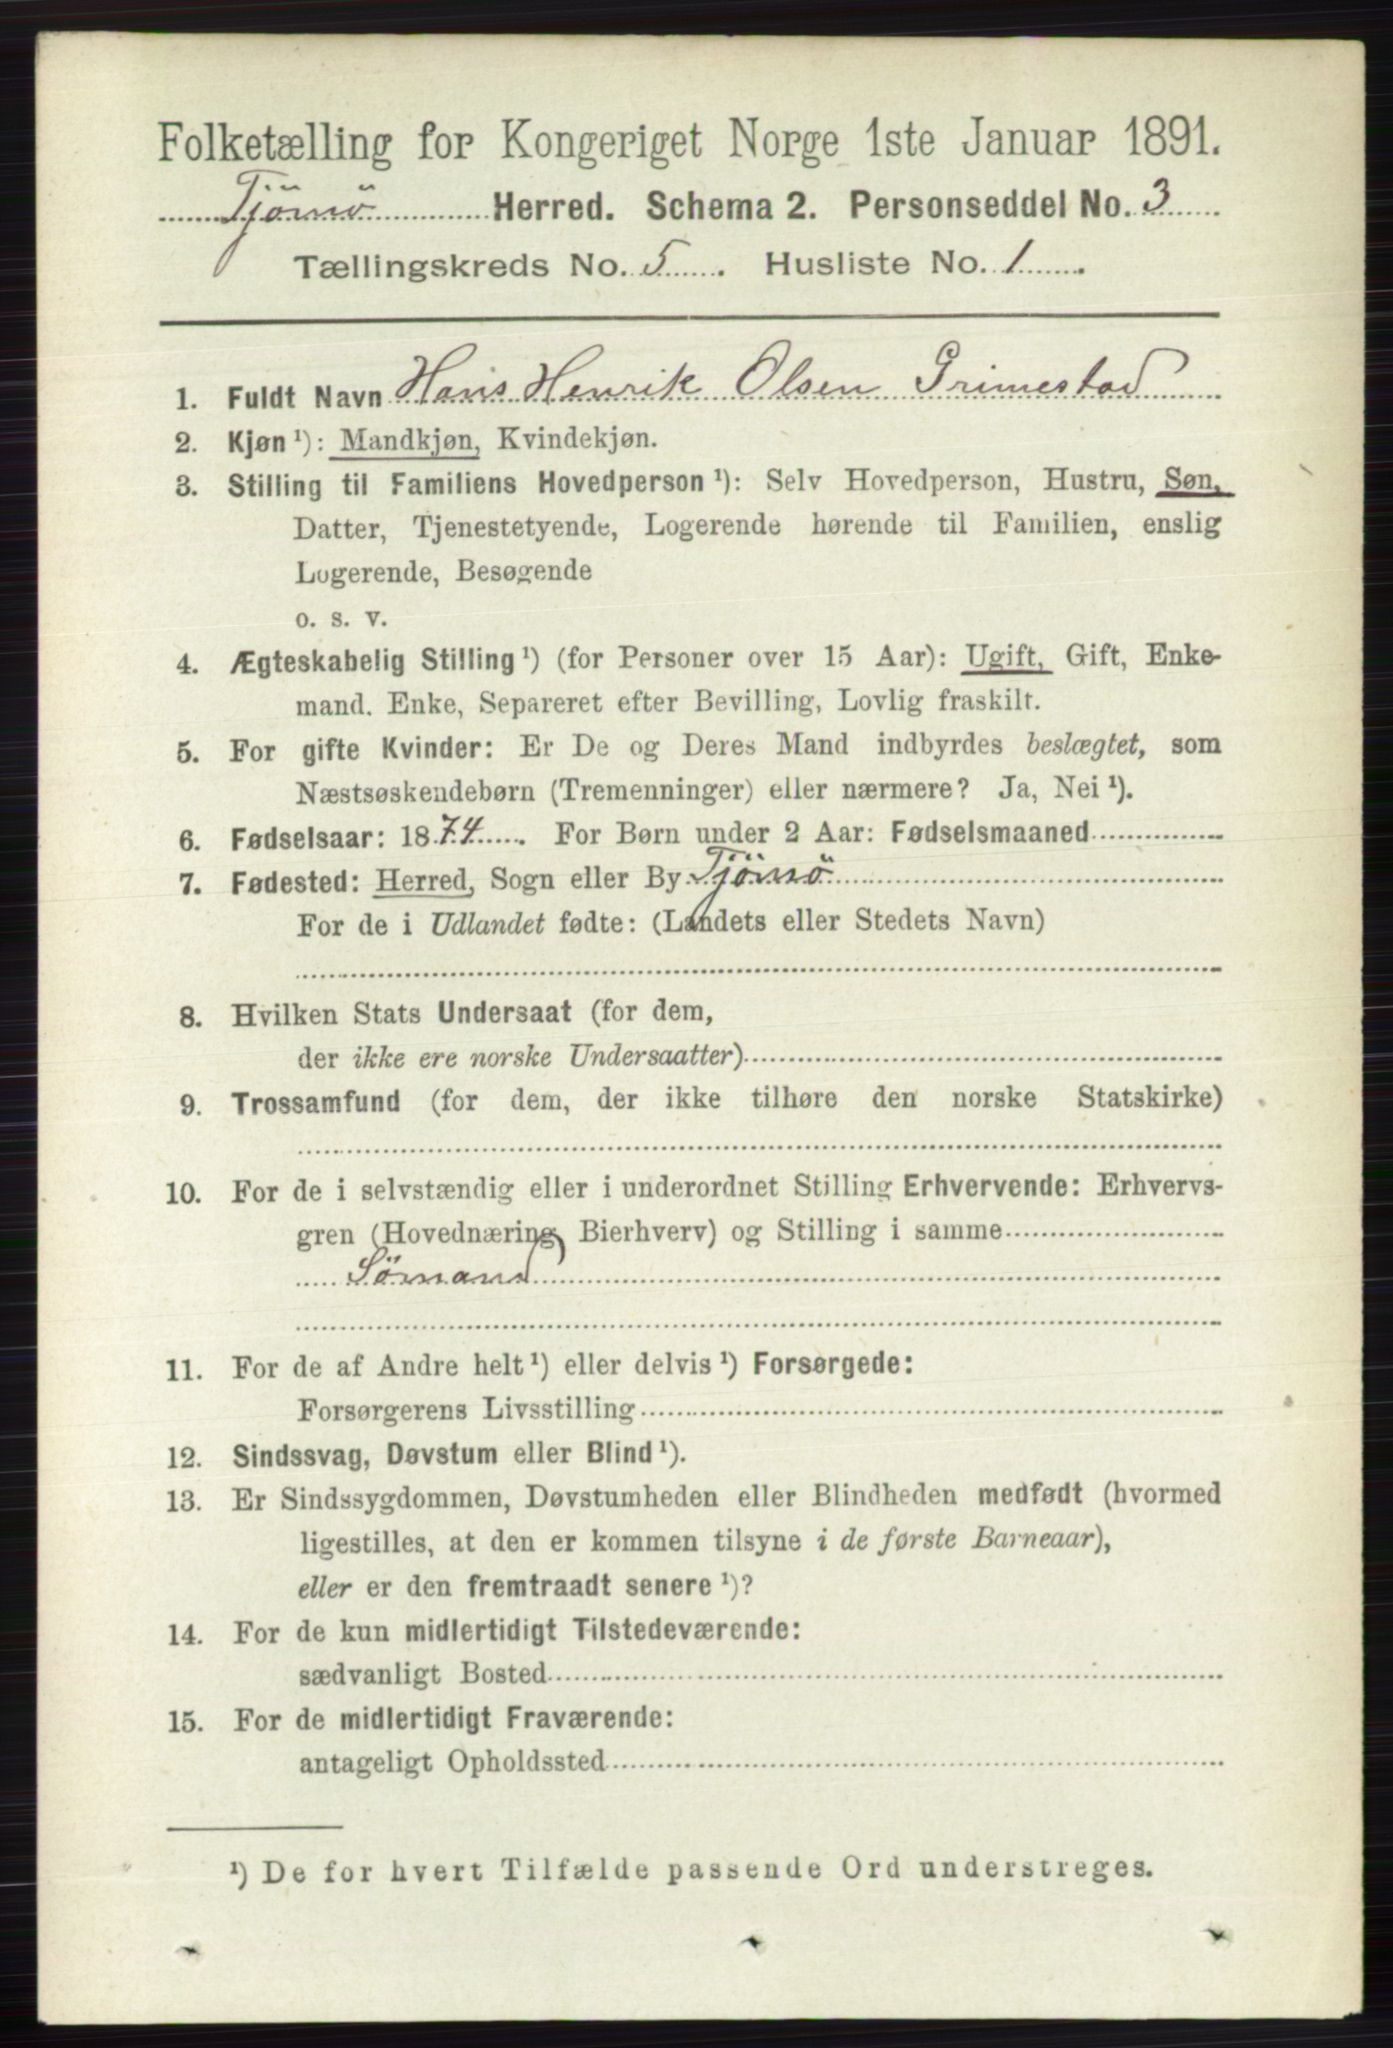 Folketælling for Kongeriget Norge 1ste Januar 1891.
Tjömö Herred. Schema 2. Personseddel No. 3
Tællingskreds No. 5. Husliste No. 1.
1. Fuldt Navn Hans Henrik Olsen Grimestad
2. Kjøn ¹): Mandkjøn, Kvindekjøn.
3. Stilling til Familiens Hovedperson ¹): Selv Hovedperson, Hustru, Søn,
Datter, Tjenestetyende, Logerende hørende til Familien, enslig
Logerende, Besøgende
o. s. v.
4. Ægteskabelig Stilling ¹) (for Personer over 15 Aar): Ugift, Gift, Enke-
mand. Enke, Separeret efter Bevilling, Lovlig fraskilt.
5. For gifte Kvinder: Er De og Deres Mand indbyrdes beslægtet, som
Næstsøskendebørn (Tremenninger) eller nærmere? Ja, Nei ¹).
6. Fødselsaar: 1874. For Børn under 2 Aar: Fødselsmaaned
7. Fødested: Herred, Sogn eller By Tjömö
For de i Udlandet fødte: (Landets eller Stedets Navn)
8. Hvilken Stats Undersaat (for dem,
der ikke ere norske Undersaatter)
9. Trossamfund (for dem, der ikke tilhøre den norske Statskirke)
10. For de i selvstændig eller i underordnet Stilling Erhvervende: Erhvervs-
gren (Hovednæring, Bierhverv) og Stilling i samme
Sömand
11. For de af Andre helt ¹) eller delvis ¹) Forsørgede:
Forsørgerens Livsstilling
12. Sindssvag, Døvstum eller Blind ¹).
13. Er Sindssygdommen, Døvstumheden eller Blindheden medfødt (hvormed
ligestilles, at den er kommen tilsyne i de første Barneaar),
eller er den fremtraadt senere ¹)?
14. For de kun midlertidigt Tilstedeværende:
sædvanligt Bosted
15. For de midlertidigt Fraværende:
antageligt Opholdssted
¹) De for hvert Tilfælde passende Ord understreges.